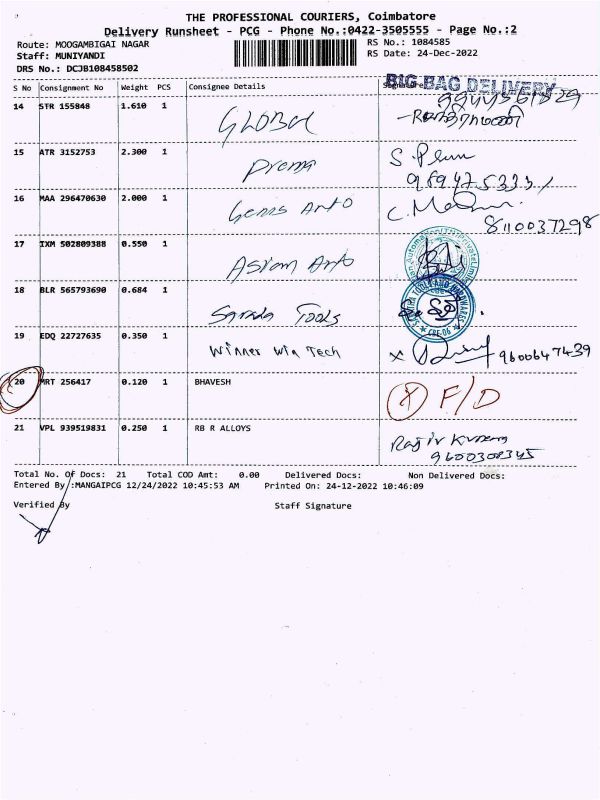 THE PROFESSIONAL COURIERS, Coimbatore
Delivery Runsheet - PCG - Phone No.:0422-3505555 - Page No.:2
Route: MOOGAMBIGAI NAGAR RS No.: 1084585
Staff: MUNIYANDI RS Date: 24-Dec-2022
DRS No.: DCJB108458502
BIG BAG DELIVERY
S No Consignment No Weight PCS Consignee Details
14 STR 155848 1.610 1 GLOBAL
15 ATR 3152753 2.300 1 Prema
16 MAA 296470630 2.000 1 Genis Auto
8110037298
17 IXM 502809388 0.550 1 Asian Auto
18 BLR 565793690 0.684 1 Sarada Tools
19 EDQ 22727635 0.350 1 Winner Win Tech 9600647439
20 MRT 256417 0.120 1 BHAVESH X F/D
21 VPL 939519831 0.250 1 RB R ALLOYS Rajiv Kumar
9600308345
Total No. Of Docs: 21 Total COD Amt: 0.00 Delivered Docs: Non Delivered Docs:
Entered By :MANGAIPCG 12/24/2022 10:45:53 AM Printed On: 24-12-2022 10:46:09
Verified By Staff Signature